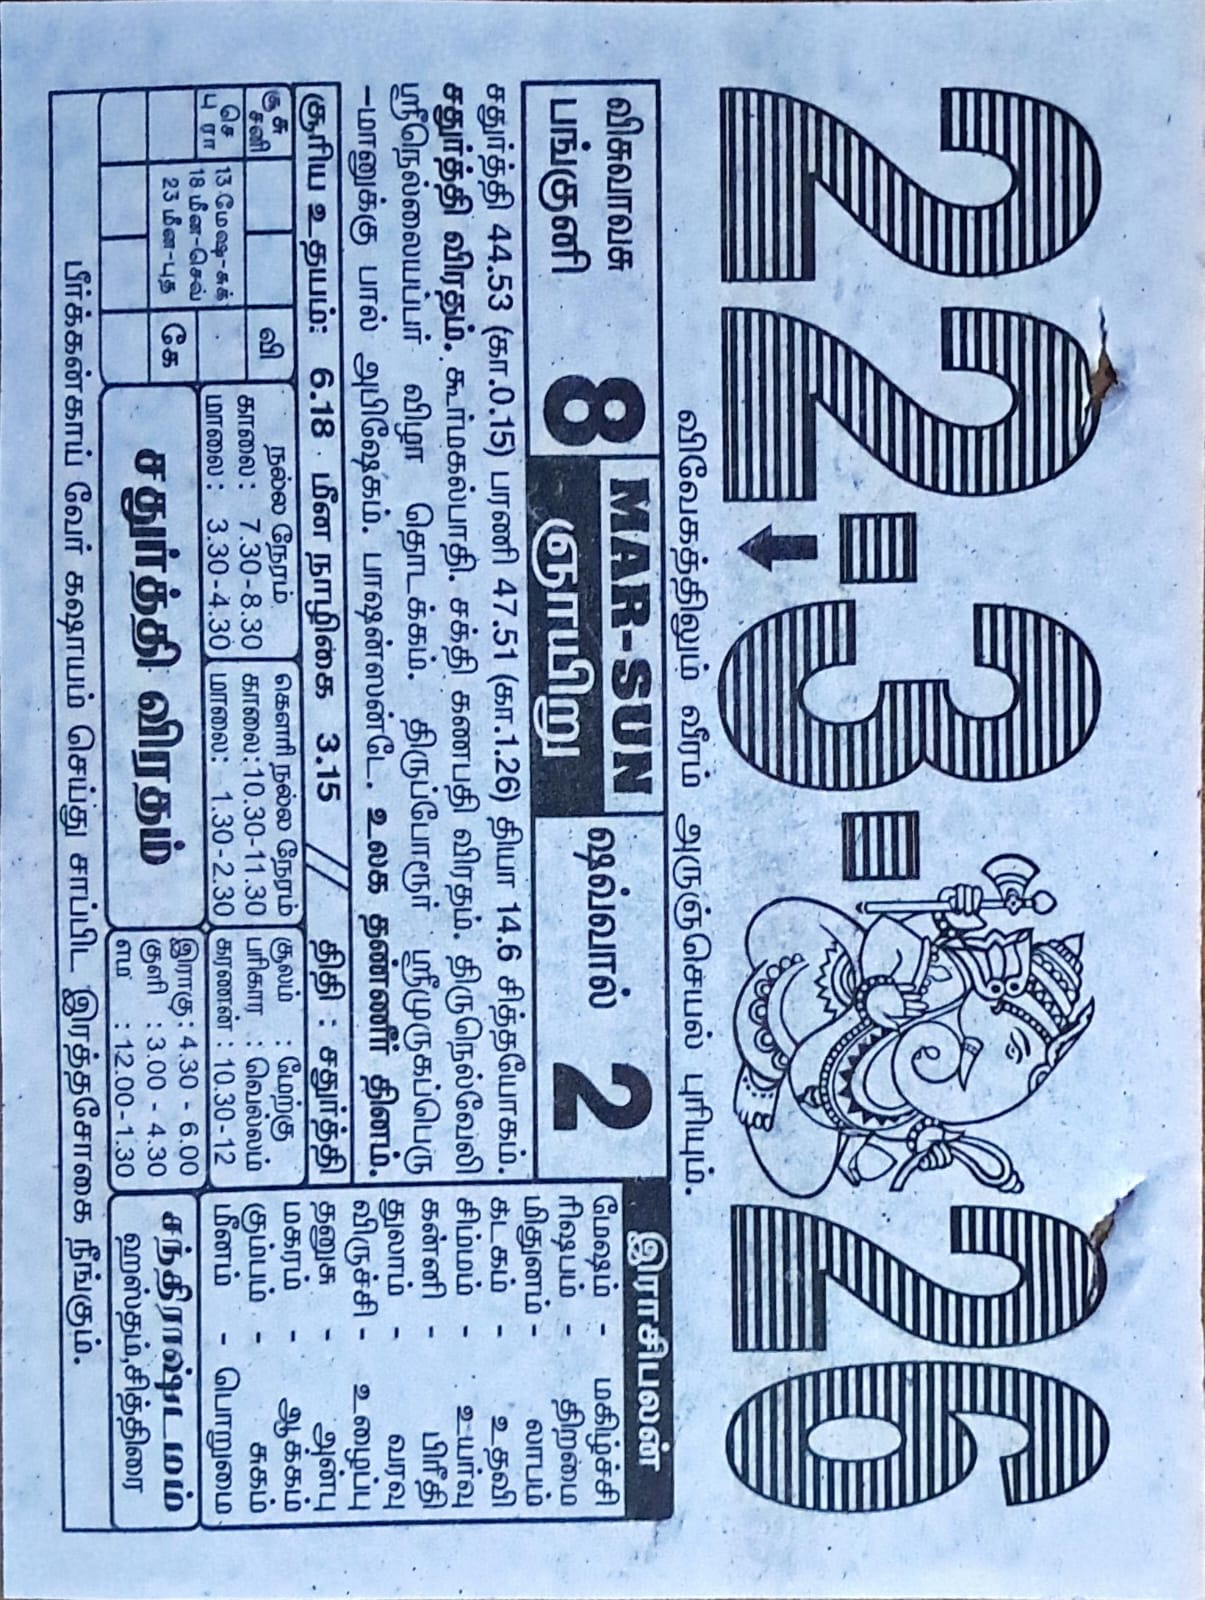 22-3-26
விவேகத்திலும் வீரம் அருஞ்செயல் புரியும்.
விசுவாவசு
பங்குனி 8
MAR-SUN
ஞாயிறு
ஷவ்வால் 2
சதுர்த்தி 44.53 (கா.0.15) பரணி 47.51 (கா.1.26) தியா 14.6 சித்தயோகம்.
சதுர்த்தி விரதம். கூர்மகல்பாதி. சக்தி கணபதி விரதம். திருநெல்வேலி
ஸ்ரீநெல்லையப்பர் விழா தொடக்கம். திருப்போரூர் ஸ்ரீமுருகப்பெரு
-மானுக்கு பால் அபிஷேகம். பாஷன்ஸண்டே. உலக தண்ணீர் தினம்.
சூரிய உதயம்: 6.18 மீன நாழிகை 3.15 // திதி : சதுர்த்தி
இராசிபலன்
மேஷம் - மகிழ்ச்சி
ரிஷபம் - திறமை
மிதுனம் - லாபம்
கடகம் - உதவி
சிம்மம் - உயர்வு
கன்னி - பிரீதி
துலாம் - வரவு
விருச்சி - உழைப்பு
தனுசு - அன்பு
மகரம் - ஆக்கம்
கும்பம் - சுகம்
மீனம் - பொறுமை
கு சனி
வி
செ
பு ரா
கே
13 மேஷ-சுக்
18 மீன-செவ்
23 மீன-புத
நல்ல நேரம்
காலை: 7.30-8.30
மாலை: 3.30-4.30
கௌரி நல்ல நேரம்
காலை:10.30-11.30
மாலை: 1.30-2.30
சூலம் : மேற்கு
பரிகார : வெல்லம்
கரணன் : 10.30-12
சதுர்த்தி விரதம்
இராகு: 4.30 - 6.00
குளி : 3.00 - 4.30
எம : 12.00-1.30
சந்திராஷ்டமம்
ஹஸ்தம்,சித்திரை
பீர்க்கன்காய் வேர் கஷாயம் செய்து சாப்பிட இரத்தசோகை நீங்கும்.